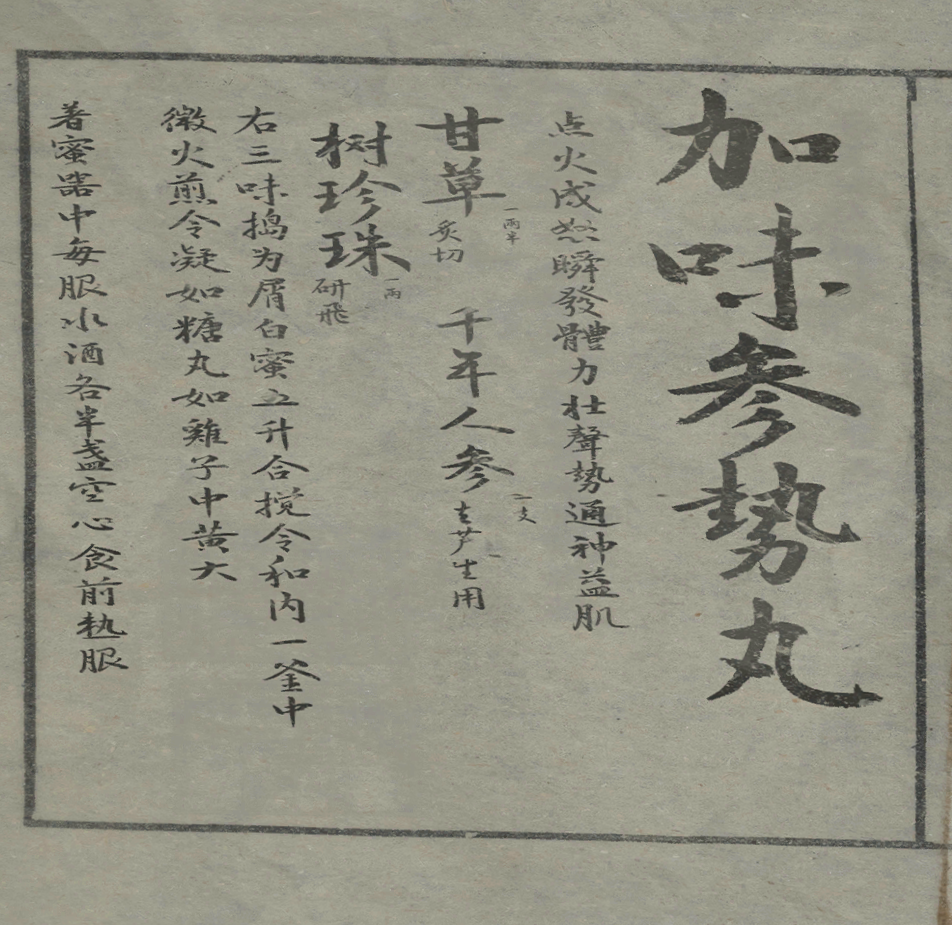 加味参势丸
点火成怒瞬發體力壮聲势通神益肌
甘草 一兩半 炙切 千年人参 一支 去芦 生用
树珍珠 一兩 研飛
右三味搗为屑白蜜五升合搅令和内一釜中
微火煎令凝如糖丸如雞子中黄大
著蜜器中每服水酒各半盏空心食前热服